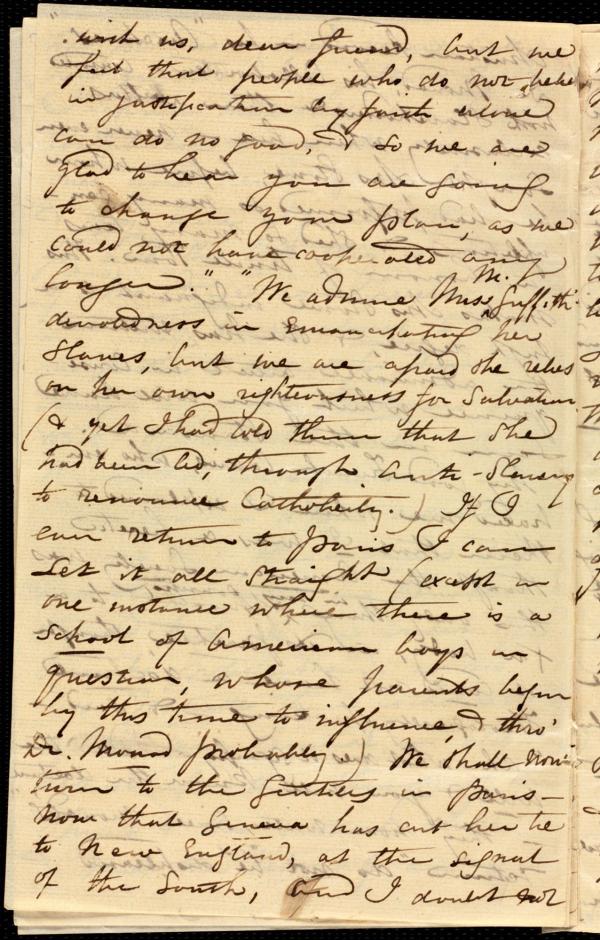 with us, dear friend, but we
feel that people who do not believe
in justification by faith alone
can do no good, & so we are
glad to hear you are going
to change your plan, as we
could not have cooperated any
longer." "We admire Miss M. Griffith's
devotedness in Emancipating her
Slaves, but we are afraid she relies
on her own righteousness for Salvation
(& yet I had told them that she
had been led, through Anti-Slavery
to renounce Catholicity.) If I
ever return to Paris I can
Set it all Straight (except in
one instance where there is a
School of American boys in
question, whose parents begin
by this time to influence, & thro'
Dr. Monod probably) We shall now
turn to the Gentiles in Paris—
Now that Geneva has cut her tie
to New England, at the signal
of the South, and I doubt not